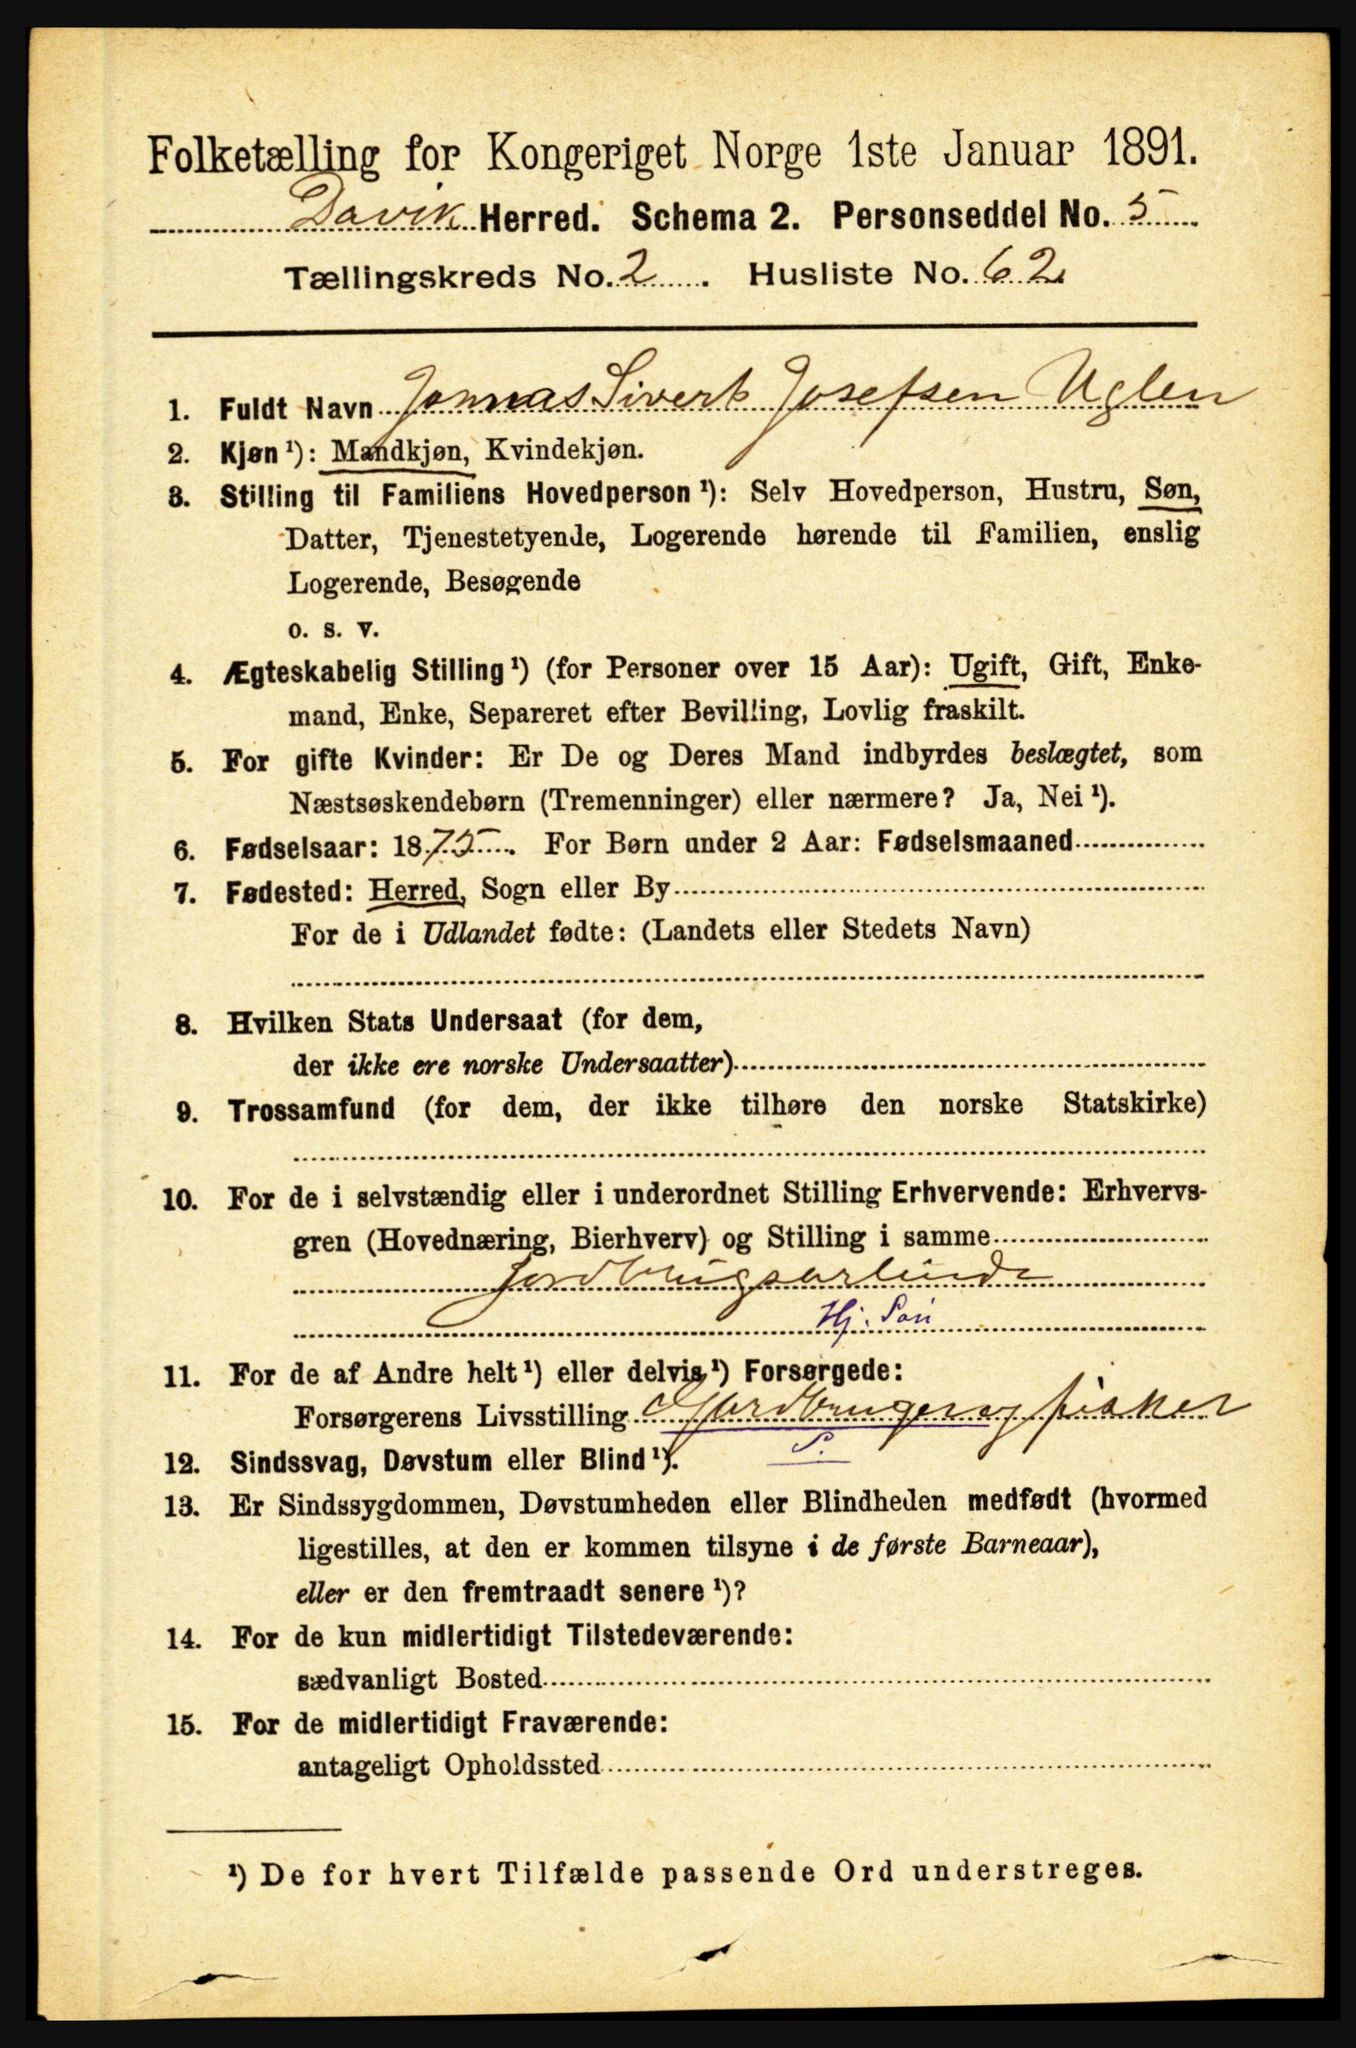 Folketælling for Kongeriget Norge 1ste Januar 1891.
Davik Herred. Schema 2. Personseddel No. 5
Tællingskreds No. 2. Husliste No. 62
1. Fuldt Navn Jonnas Sivert Josefsen Uglen
2. Kjøn¹): Mandkjøn, Kvindekjøn.
3. Stilling til Familiens Hovedperson¹): Selv Hovedperson, Hustru, Søn,
Datter, Tjenestetyende, Logerende hørende til Familien, enslig
Logerende, Besøgende
o. s. v.
4. Ægteskabelig Stilling¹) (for Personer over 15 Aar): Ugift, Gift, Enke-
mand, Enke, Separeret efter Bevilling, Lovlig fraskilt.
5. For gifte Kvinder: Er De og Deres Mand indbyrdes beslægtet, som
Næstsøskendebørn (Tremenninger) eller nærmere? Ja, Nei¹).
6. Fødselsaar: 1875. For Børn under 2 Aar: Fødselsmaaned
7. Fødested: Herred, Sogn eller By
For de i Udlandet fødte: (Landets eller Stedets Navn)
8. Hvilken Stats Undersaat (for dem,
der ikke ere norske Undersaatter)
9. Trossamfund (for dem, der ikke tilhøre den norske Statskirke)
10. For de i selvstændig eller i underordnet Stilling Erhvervende: Erhvervs-
gren (Hovednæring, Bierhverv) og Stilling i samme
Jordbrugsarbeide
Hj. Søn
11. For de af Andre helt¹) eller delvis¹) Forsørgede:
Forsørgerens Livsstilling Gjordbruger og fisker
S.
12. Sindssvag, Døvstum eller Blind¹).
13. Er Sindssygdommen, Døvstumheden eller Blindheden medfødt (hvormed
ligestilles, at den er kommen tilsyne i de første Barneaar),
eller er den fremtraadt senere¹)?
14. For de kun midlertidigt Tilstedeværende:
sædvanligt Bosted
15. For de midlertidigt Fraværende:
antageligt Opholdssted
¹) De for hvert Tilfælde passende Ord understreges.